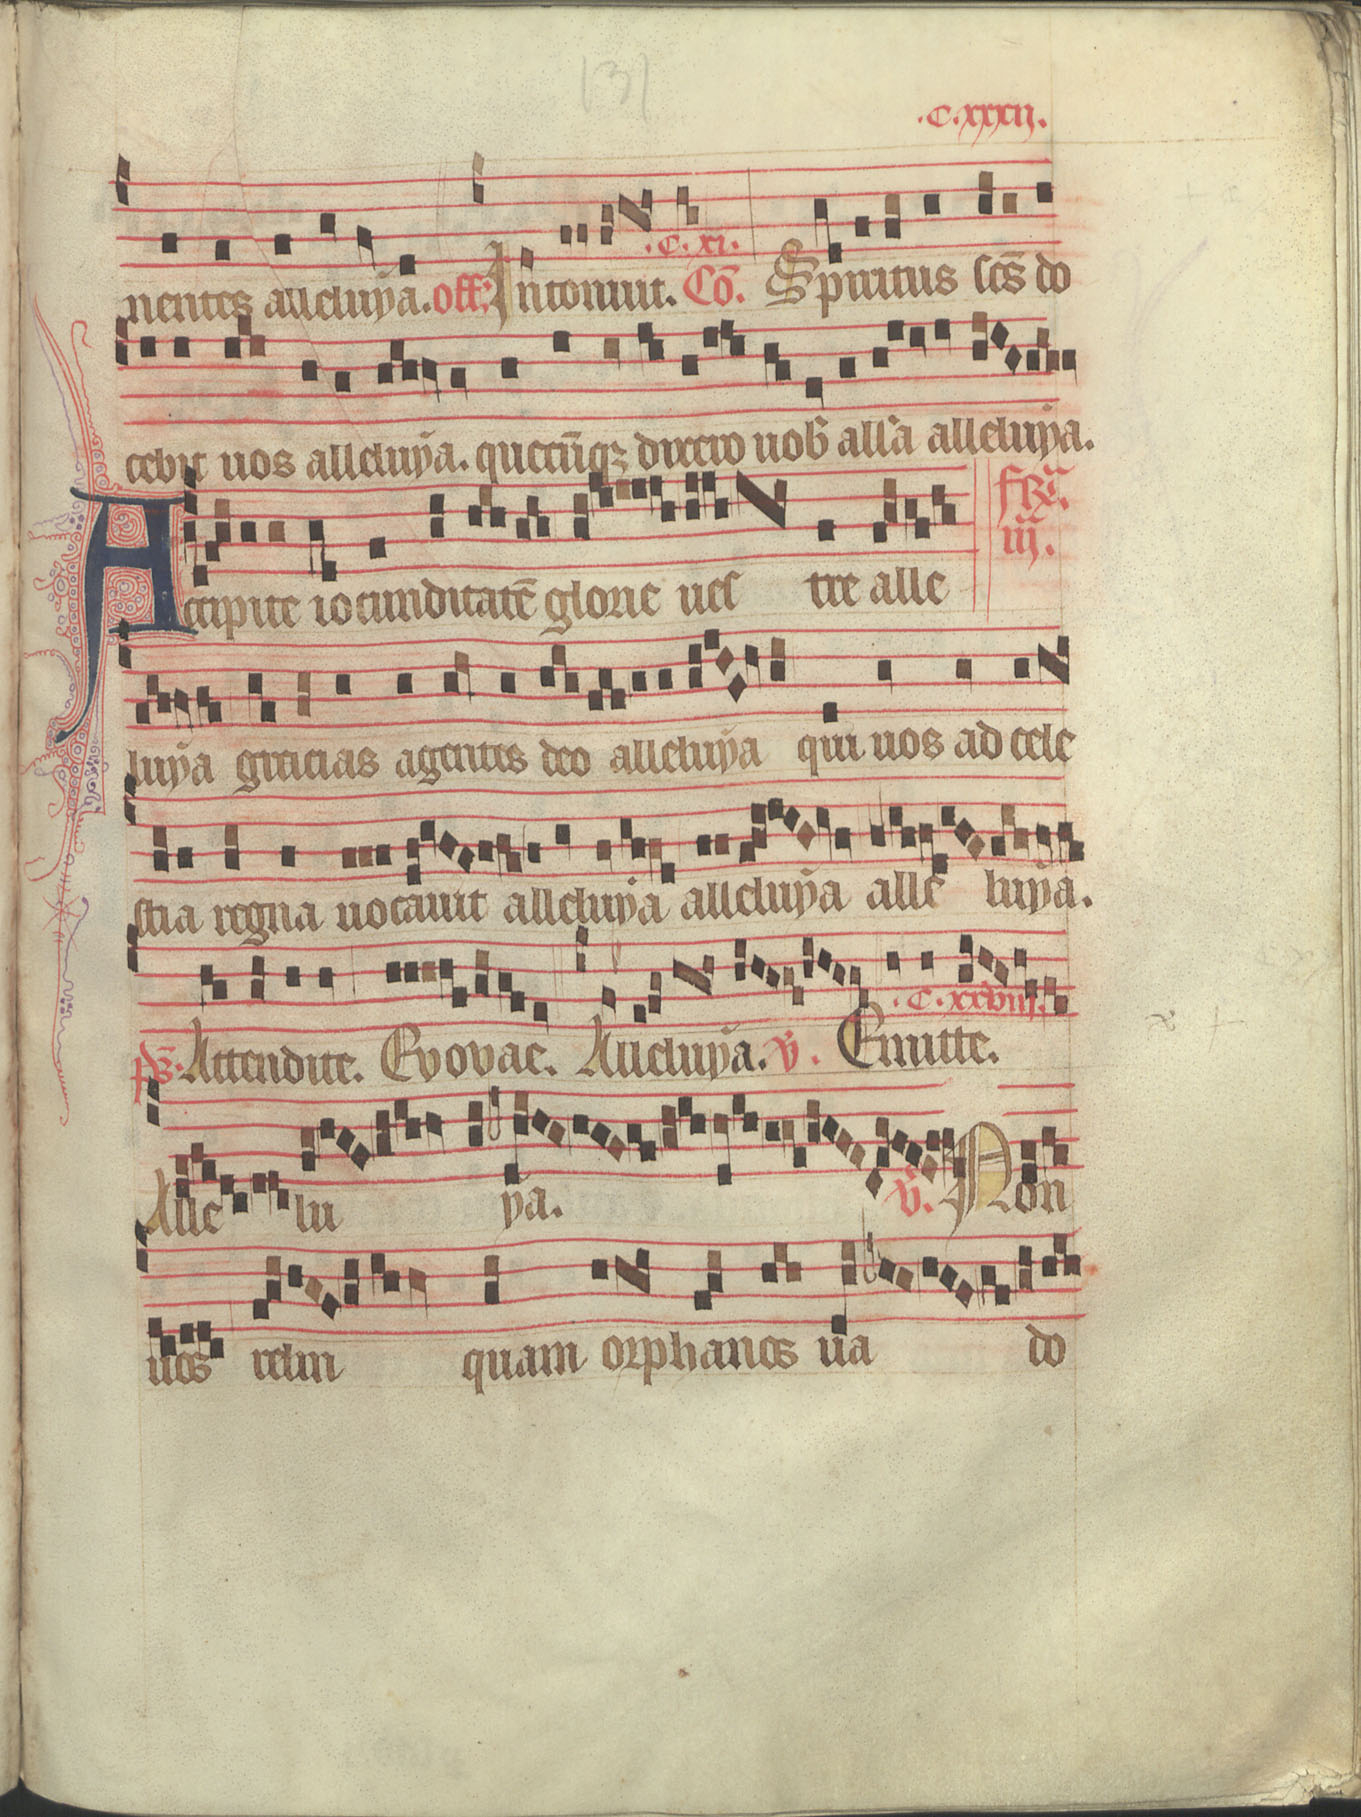 131
.c.xxxij.
.c.xi.
nentes alleluya. off. Intonuit. Co. Spiritus scs do
cebit uos alleluya. quecūqz dixero uob alla alleluya.
fr̄a iij.
Accipite iocunditatē glorie ues tre alle
luya gracias agentes deo alleluya qui uos ad cele
stia regna uocauit alleluya alleluya alle luya.
.c.xxviij.
ps. Attendite. Evovae. Alleluya. v. Emitte.
Alle lu ya. v. Non
uos relin quam orphanos ua do